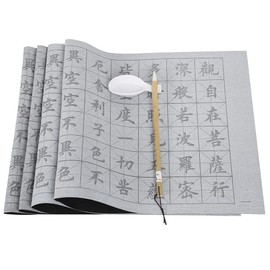 觀自在菩薩行
深般若波羅密
度一切苦
厄舍利子色不
異空空不異